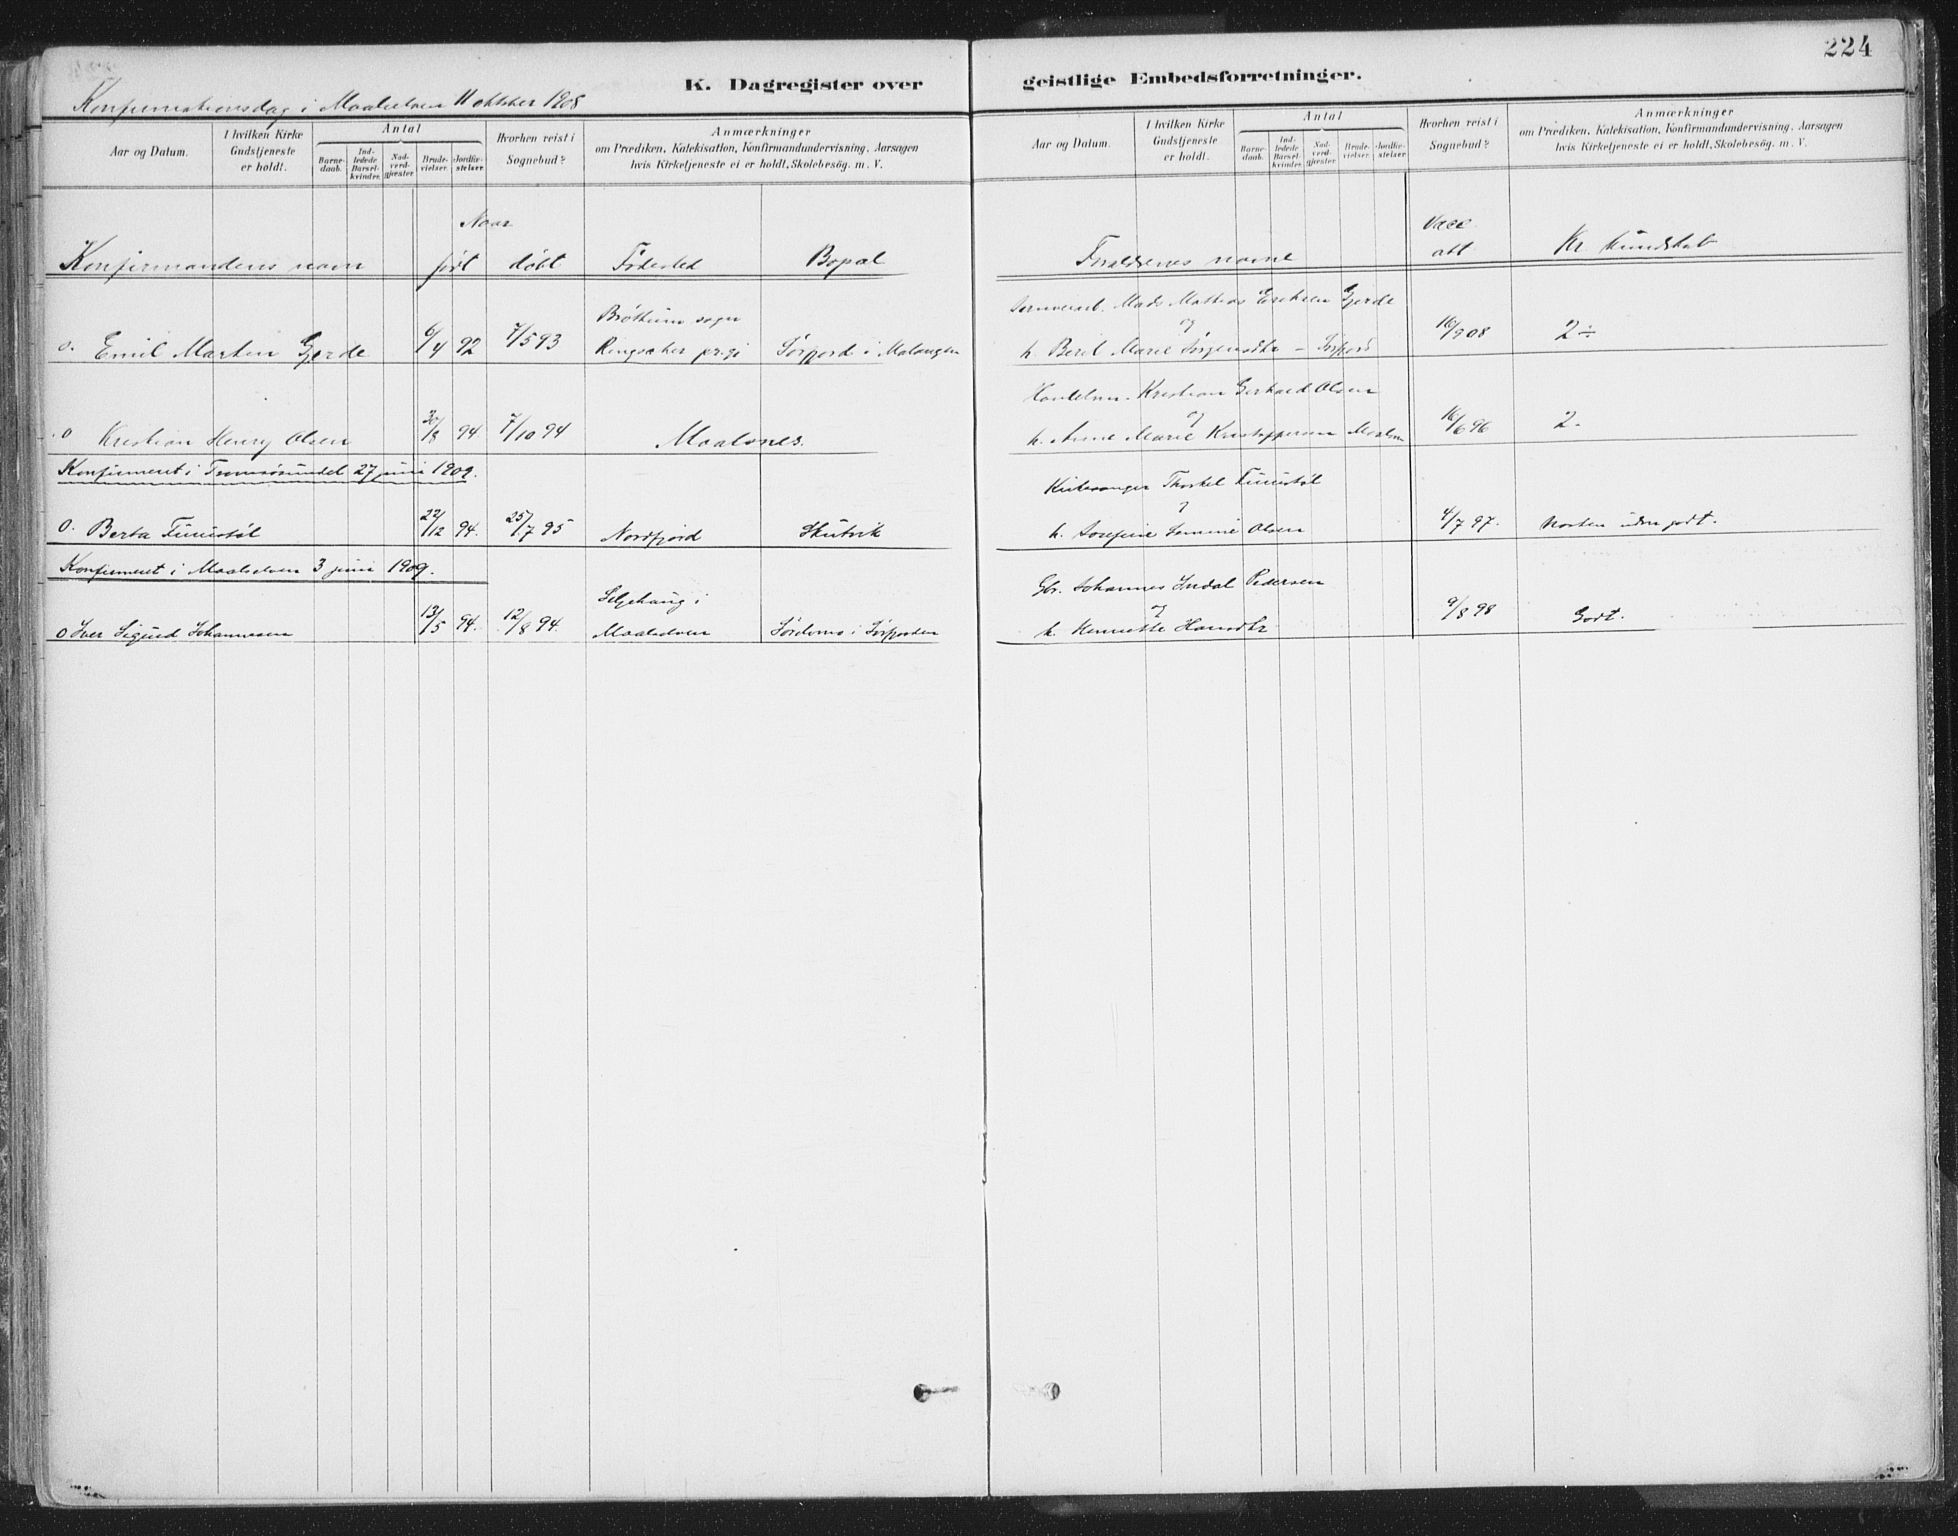 224
K. Dagregister over geistlige Embedsforretninger.
Konfirmationsdag i Maalselven 11 oktober 1908
Aar og Datum.
I hvilken Kirke Gudstjeneste er holdt.
Antal
Barnedaab.
Indledede Barselkvinder.
Nadverdgjæster.
Brudevielser.
Jordfæstelser.
Hvorhen reist i Sognebud?
Anmærkninger
om Prædiken, Katekisation, Konfirmandundervisning, Aarsagen
hvis Kirketjeneste ei er holdt, Skolebesög. m. V.
Aar og Datum.
I hvilken Kirke Gudstjeneste er holdt.
Antal
Barnedaab.
Indledede Barselkvinder.
Nadverdgjæster.
Brudevielser.
Jordfæstelser.
Hvorhen reist i Sognebud?
Anmærkninger
om Prædiken, Katekisation, Konfirmandundervisning. Aarsagen
hvis Kirketjeneste ei er holdt, Skolebesög. m. V.
Naar
Vacc.
Konfirmandens navn født døbt Fødested Bopæl Forældrenes navne att Kr. kundskab
Brøttum sogn Mads Mathias Eriksen Gjerde
og
o. Emil Martin Gjerde 6/4 92 7/5 93 Ringsaker pr.gj Sørfjord i Malangen h. Beret Marie Jørgensdtr - Sørfjord 16/9 08 2 ÷
Kristian Gerhard Olsen
og
o Kristian Henry Olsen 30/8 94 7/10 94 Maalsnes. h. Anne Marie Kristoffersen 16/6 96 2-
Konfirmeret i Tromsøsundet 27 juni 1909.
Kirkesanger Thorkel
og
o. Berta 22/12 94. 25/7 95 Nordfjord Skutvik h. Josefine Olsen 4/7 97. Næsten udm godt.
Konfirmeret i Maalselven 3 juni 1909.
Seljehaug i Gbr. Johannes Indal Pedersen
og
o Iver Sigurd Johannesen 13/5 94. 12/8 94. Maalselven i Sørfjorden h. Henriette Hansdtr 9/8 98 Godt.